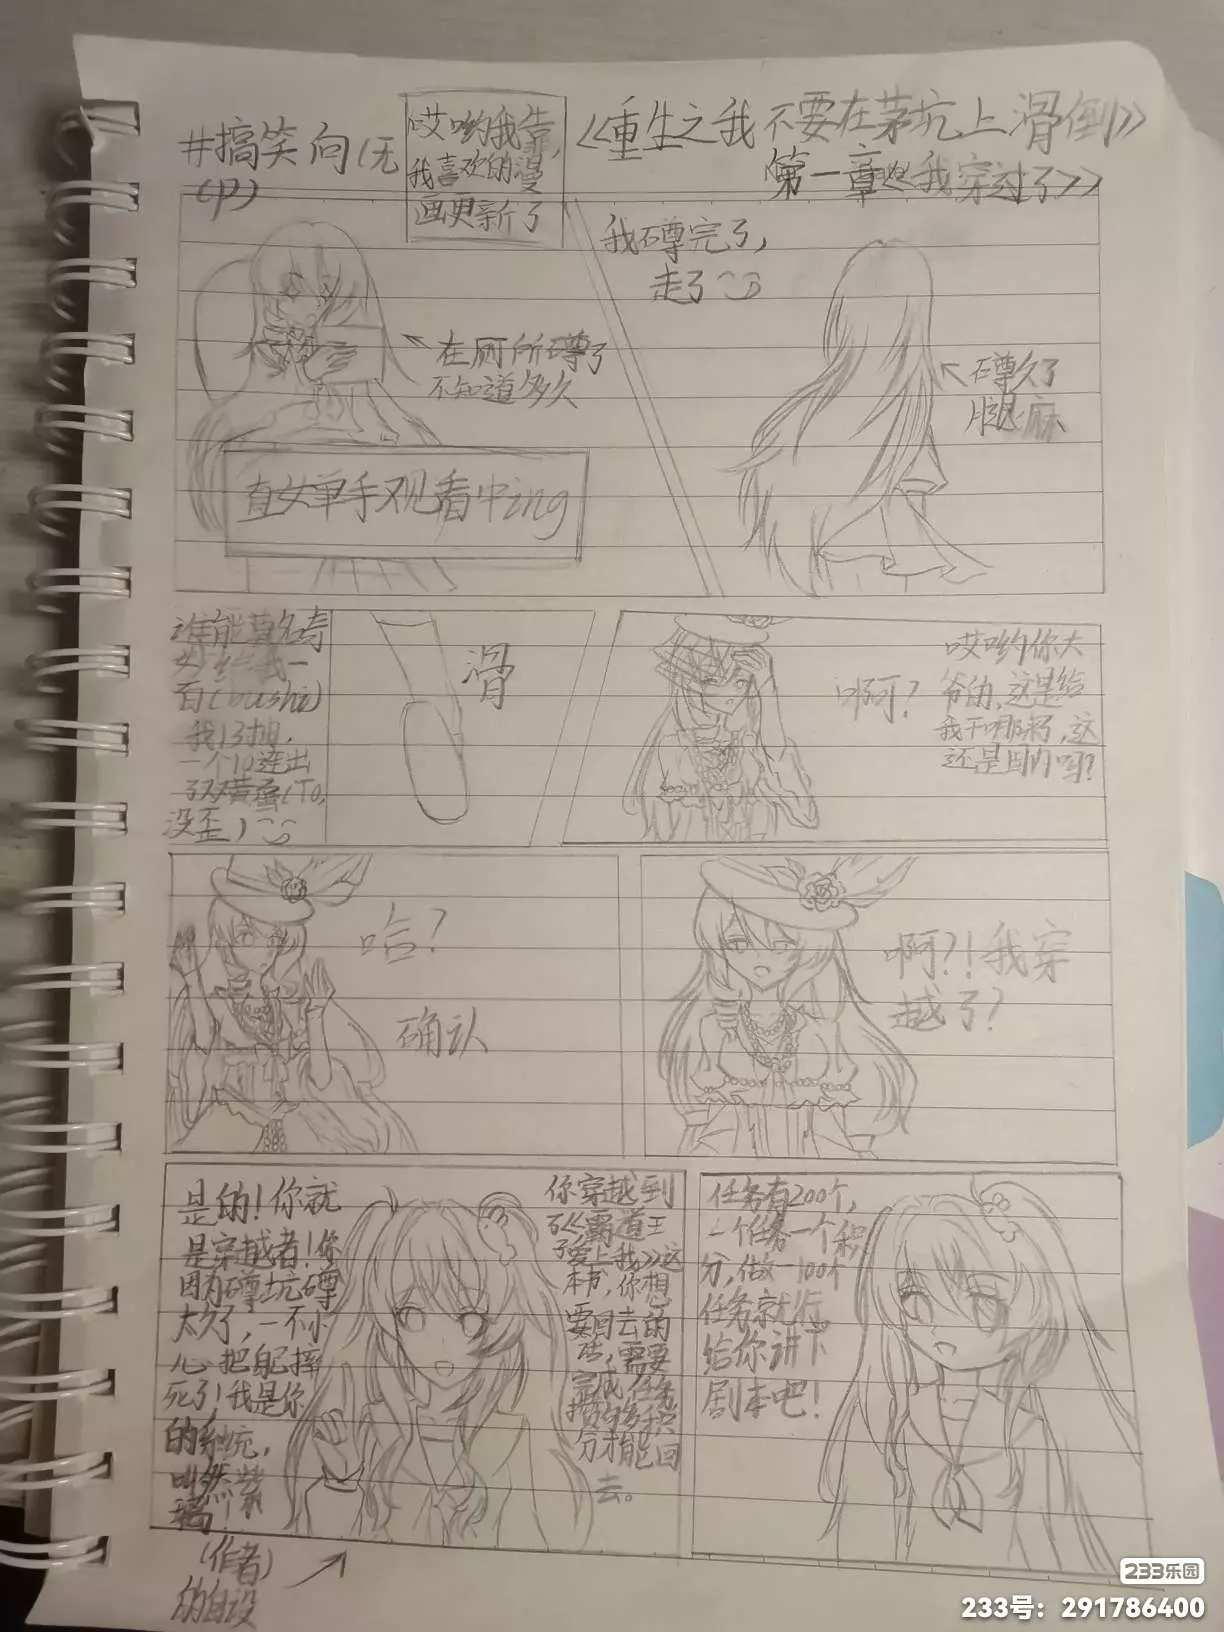 #搞笑向(无
cp)
哎哟我靠,
我喜欢的漫
画更新了
《重生之我不要在茅坑上滑倒》
第一章《我穿过了》
在厕所蹲了
不知道多久
直女单手观看中ing
我蹲完了,
走了
蹲久了
腿麻
谁能
一
百(bushi)
我13抽,
一个10连出
了双黄
没歪)
滑
啊?
哎哟你大
爷的,这是给
我干哪来了,这
还是国内吗?
哈?
确认
啊?!我穿
越了?
是的!你就
是穿越者!你
因为蹲坑蹲
太久了,一不小
心把自己摔
死了!我是你
的系统,
叫然紫
(作者)
的自设
你穿越到
了《霸道王
爱上我》这
本书,你想
要回去的
话,需要
完成任务
攒够多积
分才能回
去。
任务有200个,
一个任务一个积
分,做一100个
任务就行。
给你讲下
剧本吧!
233乐园
233号:291786400